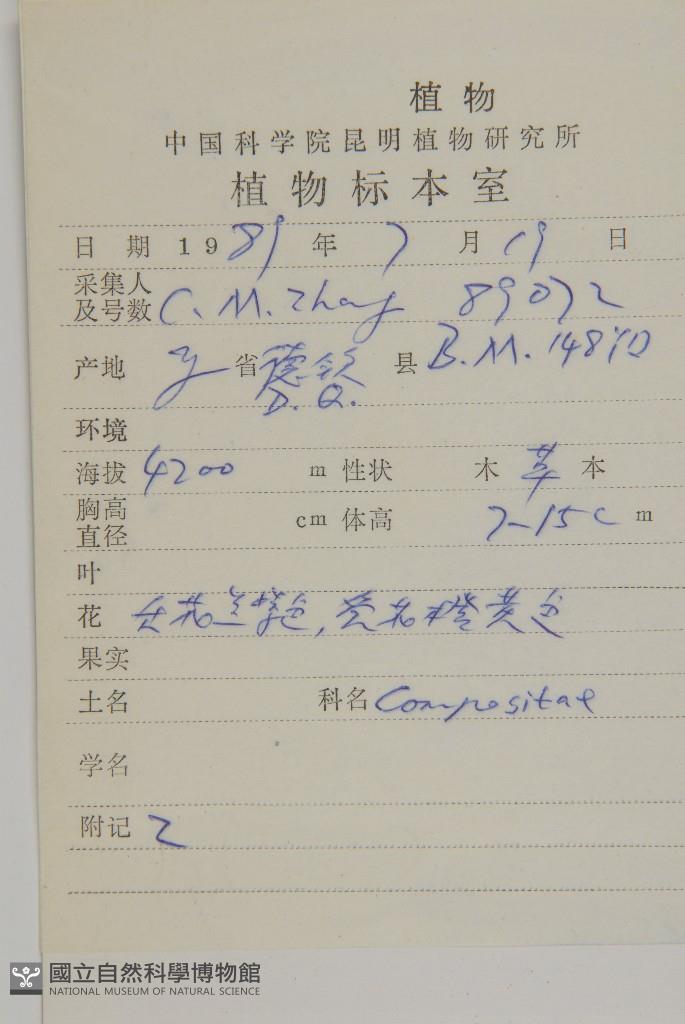 植物
中国科学院昆明植物研究所
植物标本室
日期 1989年7月19日
采集人
及号数 C. M. Zhang 89072
产地 省德钦县 B.M. 148
D.Q.
环境
海拔 4200 m 性状 木草本
胸高
直径 cm 体高 7-15c m
叶
花 舌花兰紫色,管花橙黄色
果实
土名 科名 Compositae
学名
附记 2
國立自然科學博物館
NATIONAL MUSEUM OF NATURAL SCIENCE